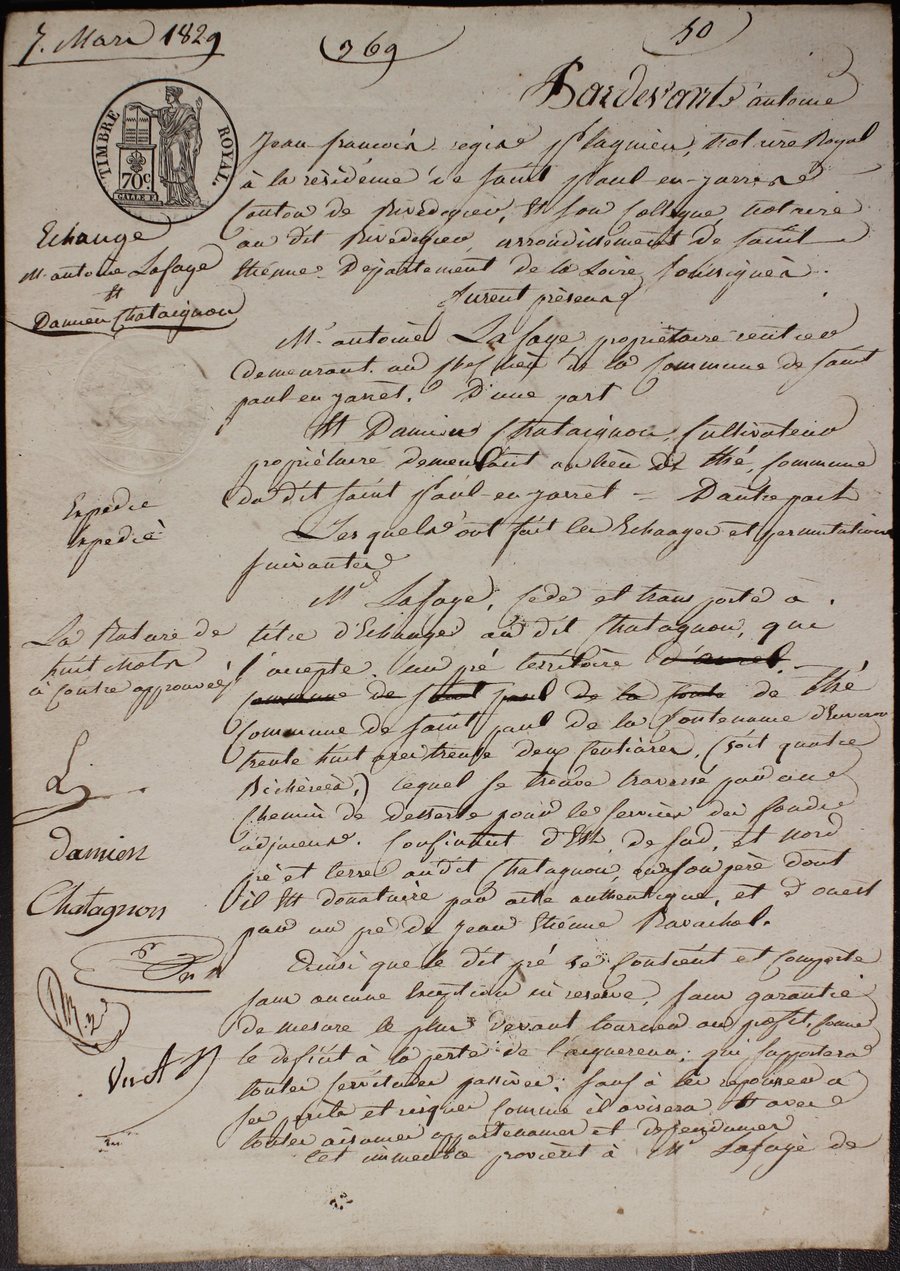 7. Mars 1829
769
50
Pardevant antoine
Jean francois regis notaire Royal
à la residence de Saint Paul-en-jarret
Canton de Rivedegier, Et Son Collegue, notaire
au dit Rivedegier, arrondissement de Saint
Etiénne Département de la Loire, Soussignés.
furent présens
Mr. antoine Lafaye propriétaire rentier
demeurant au chef lieu de la Commune de Saint
paul en jarret. D'une part
Et Damien Chataignon, Cultivateur
propriétaire demeurant au lieu de thé, Commune
du dit Saint Paul-en-jarret = Dautre part
Lesquels ont fait les Echanges et permutations
suivantes
Mr. Lafaye, Cede et transporte à
titre d'Echange au dit Chatagnon, qui
l'accepte, un pré territoire d'aurel
commune de Saint paul de la de thé
Commune de Saint paul de la Contenance d'Environ
trente huit ares trente deux Centiares, (soit quatre
Bicherées,) lequel se trouve traversé par un
Chemin de desserte pour le Service des fonds
adjacens. Confinant d'Est, de Sud, et Nord
pré et terre au dit Chatagnon, ou son père dont
il Est donataire par acte authentique, et d'ouest
par un pré de Jean Etiénne Ravachol.
Ainsi que le dit pré se Contient et Comporte
sans aucune Exception ni reserve, sans garantie
de mesure le plus devant tourner au profit, Comme
le deficit à la perte de l'acquereur; qui supportera
toutes servitudes passives, sauf à les repousser à
ses périls et risques Comme il avisera Et avec
toutes aisances appartenances et dépendances
Cet immeuble provient à Mr. Lafaye de
TIMBRE ROYAL.
70c.
Echange
Mr. antoine Lafaye
Et
Damien Chataignon
Expedié
Expedié
La Rature de
huit mots
à Contre approuvée
L
damien
Chatagnon